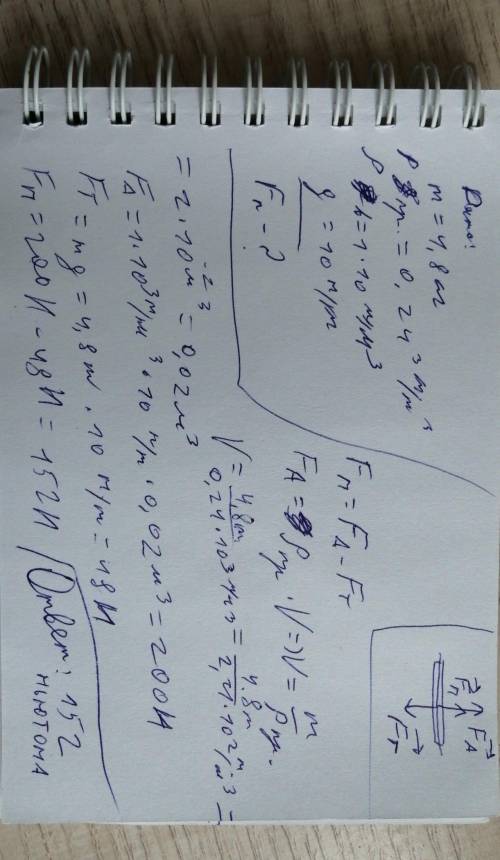 Дано:
m = 4,8 кг
ρ пр. = 0,24·10³ кг/м³
ρ в = 1·10³ кг/м³
g = 10 Н/кг
Fп - ?
Fп FА
Fт
Fп = FА - Fт
FА = ρ пр. · V => V = m/ρпр.
V = 4,8кг / 0,24·10³ кг/м³ = 4,8кг / 2,4·10² кг/м³ =
= 2·10⁻²м³ = 0,02м³
FА = 1·10³ кг/м³ · 10 Н/кг · 0,02м³ = 200Н
Fт = mg = 4,8кг · 10 Н/кг = 48Н
Fп = 200Н - 48Н = 152Н
Ответ: 152
ньютона